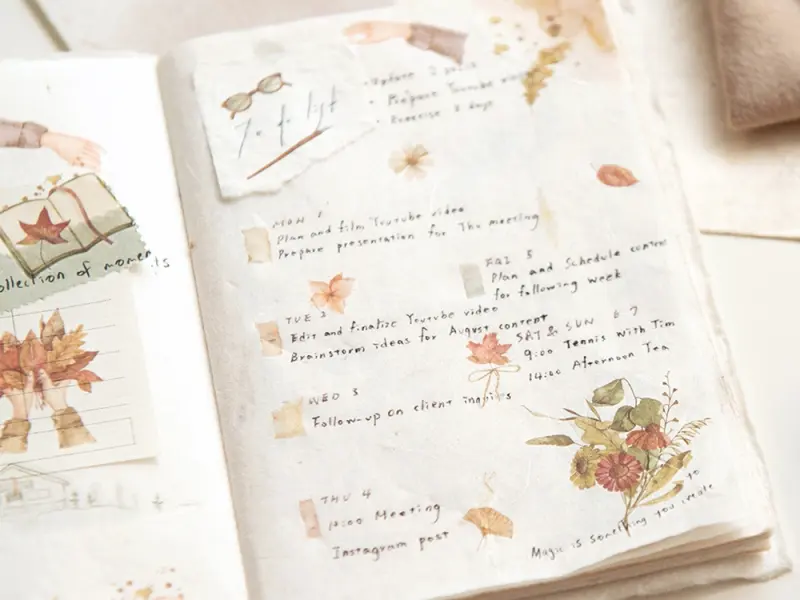 ollection of moments
To do list
• Update 2
• Prepare Youtube video
• Exercise 3 days
MON 1
Plan and film Youtube video
Prepare presentation for Thu meeting
TUE 2
Edit and finalize Youtube video
Brainstorm ideas for August content
WED 3
Follow-up on client inquiries
THU 4
Meeting
Instagram post
FRI 5
Plan and Schedule content
for following week
SAT & SUN 6 7
9:00 Tennis with Tim
14:00 Afternoon Tea
Magic is something you create